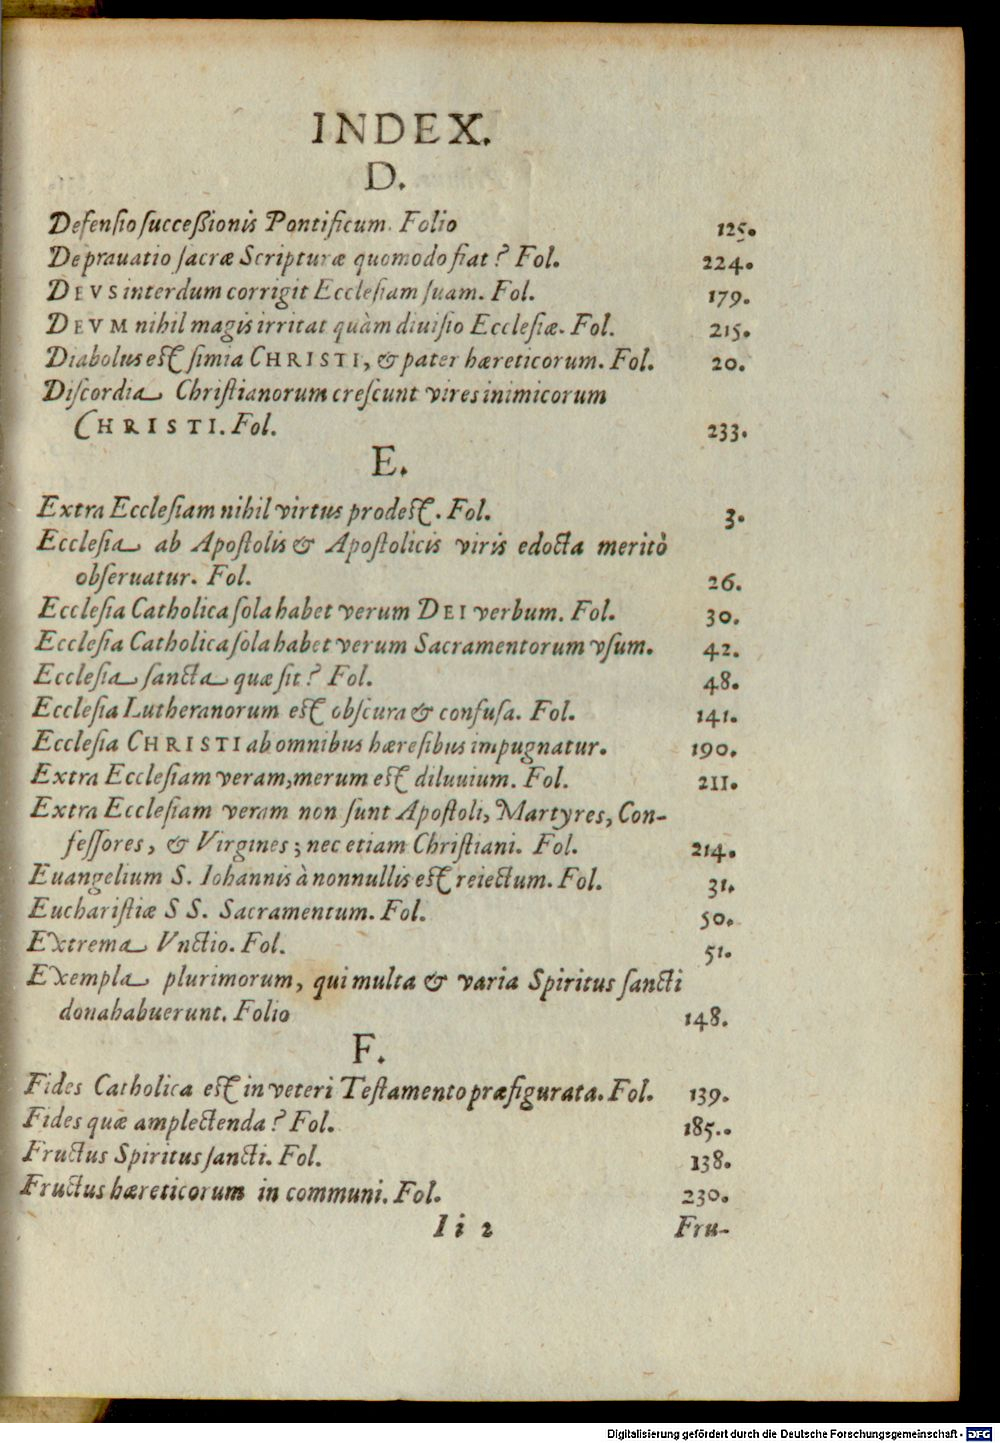 INDEX.
D.
Defensio succeßionis Pontificum. Folio 125.
Deprauatio sacræ Scripturæ quomodo fiat? Fol. 224.
DEVS interdum corrigit Ecclesiam suam. Fol. 179.
DEVM nihil magis irritat quàm diuisio Ecclesiæ. Fol. 215.
Diabolus est simia CHRISTI, & pater hæreticorum. Fol. 20.
Discordia Christianorum crescunt vires inimicorum
CHRISTI. Fol. 233.
E.
Extra Ecclesiam nihil virtus prodest. Fol. 3.
Ecclesia ab Apostolis & Apostolicis viris edocta meritò
obseruatur. Fol. 26.
Ecclesia Catholica sola habet verum DEI verbum. Fol. 30.
Ecclesia Catholica sola habet verum Sacramentorum vsum. 42.
Ecclesia sancta quæ sit? Fol. 48.
Ecclesia Lutheranorum est obscura & confusa. Fol. 141.
Ecclesia CHRISTI ab omnibus hæresibus impugnatur. 190.
Extra Ecclesiam veram, merum est diluuium. Fol. 211.
Extra Ecclesiam veram non sunt Apostoli, Martyres, Con-
fessores, & Virgines; nec etiam Christiani. Fol. 214.
Euangelium S. Iohannis à nonnullis est reiectum. Fol. 31.
Eucharistiæ SS. Sacramentum. Fol. 50.
Extrema Vnctio. Fol. 51.
Exempla plurimorum, qui multa & varia Spiritus sancti
dona habuerunt. Folio 148.
F.
Fides Catholica est in veteri Testamento præfigurata. Fol. 139.
Fides quæ amplectenda? Fol. 185..
Fructus Spiritus sancti. Fol. 138.
Fructus hæreticorum in communi. Fol. 230.
Ii 2 Fru-
Digitalisierung gefördert durch die Deutsche Forschungsgemeinschaft - DFG